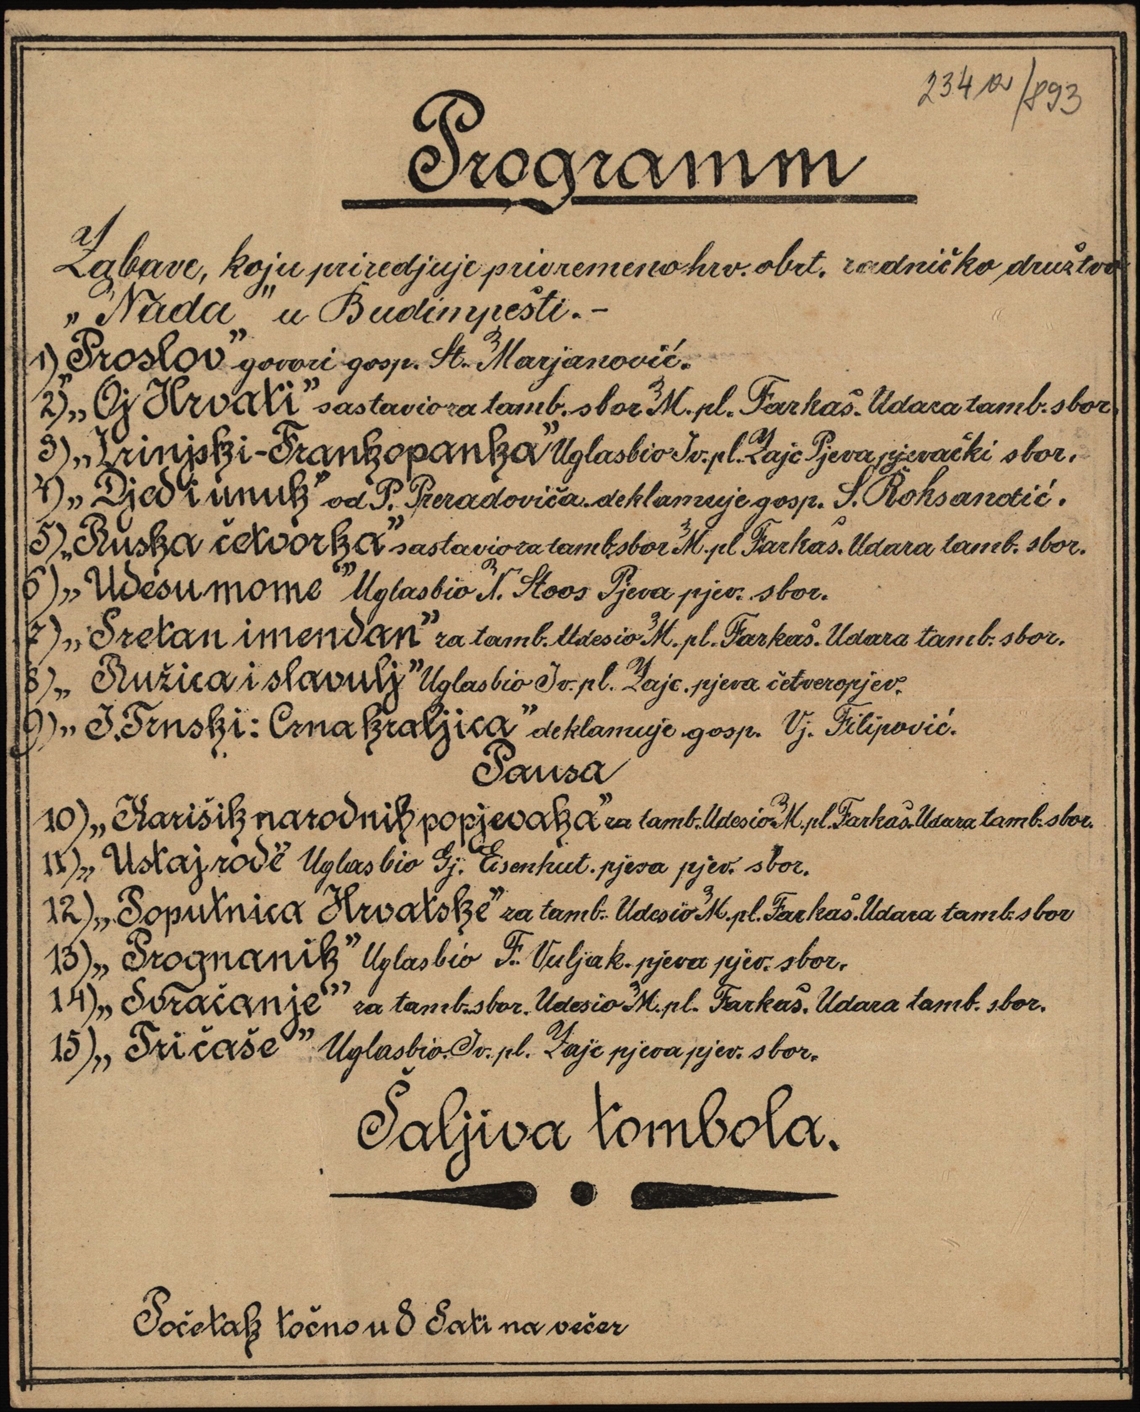 234 /893
Programm
Zabave, koju priredjuje privremeno hrv. obrt. radničko družtvo
„Nada" u Budimpešti. -
1) „Proslov" govori gosp. St. Marjanović.
2) „Oj Hrvati" sastavio za tamb. sbor M. pl. Farkaš. Udara tamb. sbor
3) „Zrinjski-Frankopanka" Uglasbio Iv. pl. Zajc Pjeva pjevački sbor.
4) „Djed i unuk" od P. Preradovića. deklamuje gosp. S. Roksandić.
5) „Ruska četvorka" sastavio za tamb. sbor M. pl. Farkaš. Udara tamb. sbor.
6) „U desu mome" Uglasbio N. Stoos Pjeva pjev. sbor.
7) „Sretan imendan" za tamb. Udesio M. pl. Farkaš. Udara tamb. sbor.
8) „Ružica i slavulj" Uglasbio Iv. pl. Zajc. pjeva četveropjev.
9) „I. Trnski: Crna kraljica" deklamuje gosp. Vj. Filipović.
Pausa
10) „Karišik narodnik popjevaka" za tamb. Udesio M. pl. Farkaš. Udara tamb. sbor.
11) „Ustaj rode" Uglasbio Gj. Eisenhut. pjeva pjev. sbor.
12) „Poputnica Hrvatske" za tamb. Udesio M. pl. Farkaš. Udara tamb. sbor
13) „Prognanik" Uglasbio F. Vuljak. pjeva pjev. sbor.
14) „Svračanje" za tamb. sbor. Udesio M. pl. Farkaš. Udara tamb. sbor.
15) „Tri čaše" Uglasbio. Iv. pl. Zajc pjeva pjev. sbor.
Šaljiva tombola.
Početak točno u 8 Sati na večer